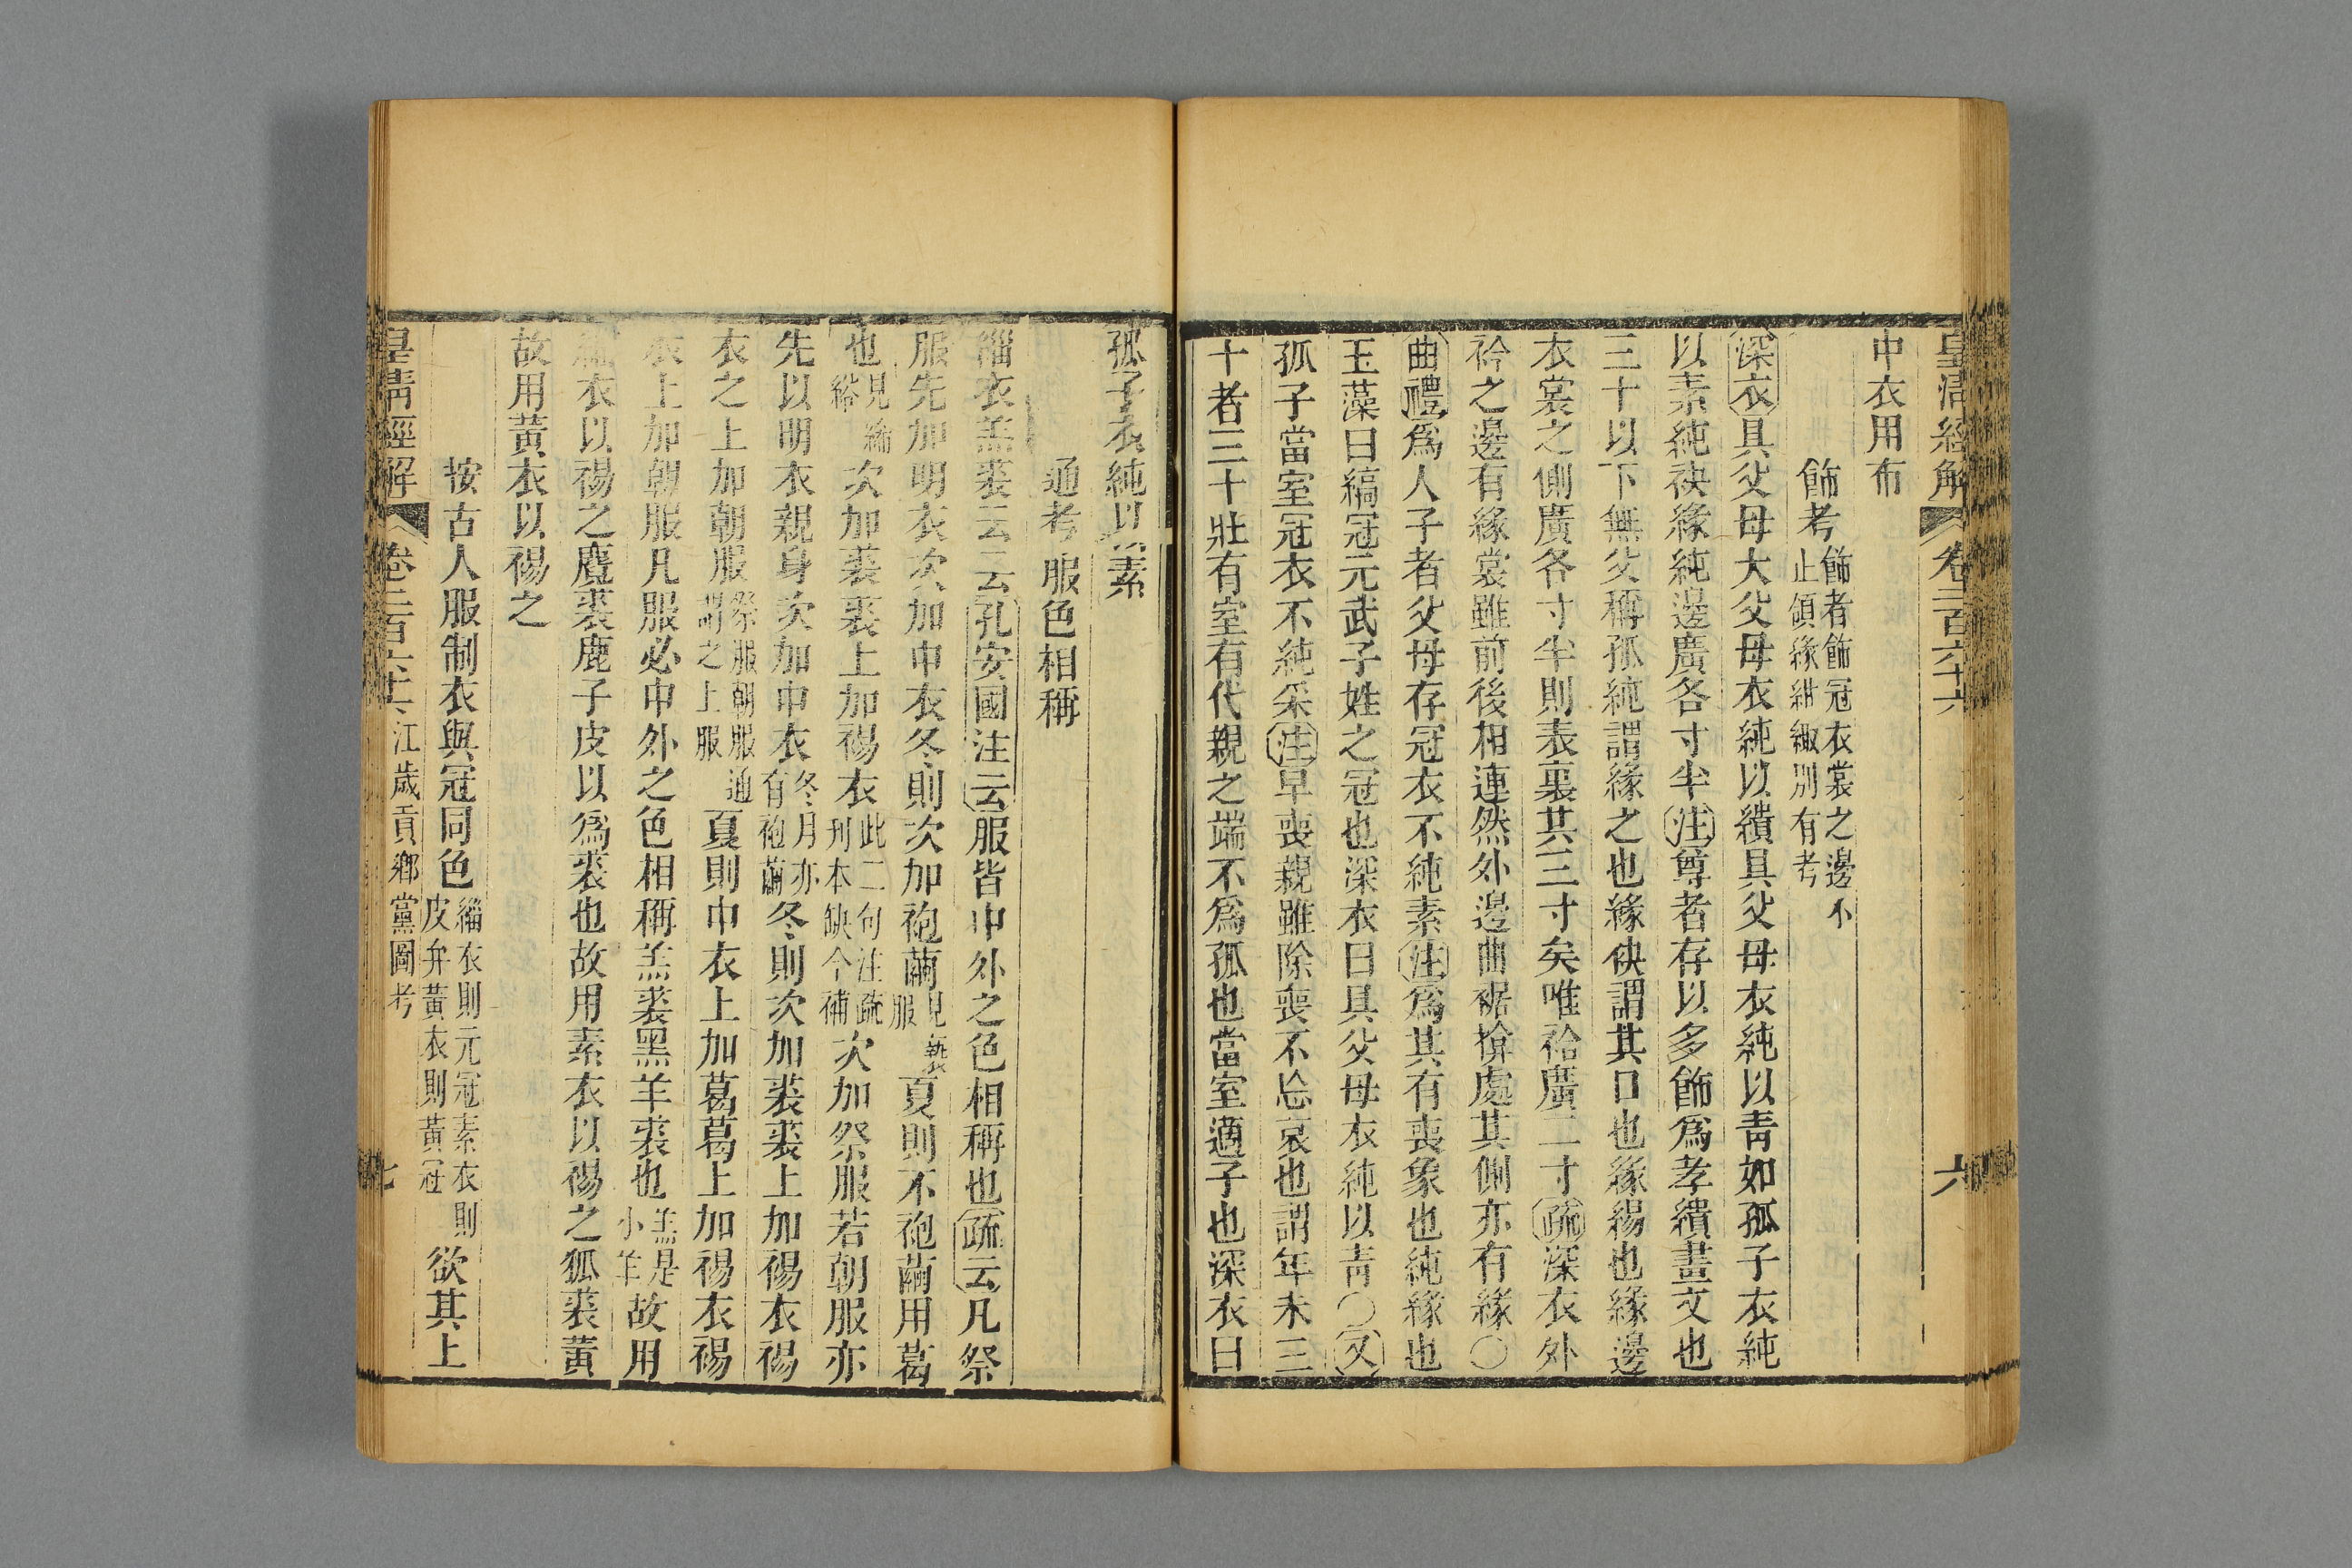 皇清經解 卷二百六十六 六
中衣用布
飾考 飾者飾冠衣裳之邊不止領緣紺緅別有考
深衣具父母大父母衣純以繢具父母衣純以青如孤子衣純
以素純袂緣純邊廣各寸半注尊者存以多飾為孝繢畫文也
三十以下無父稱孤純謂緣之也緣袂謂其口也緣緆也緣邊
衣裳之側廣各寸半則表裏共三寸矣唯袷廣二寸疏深衣外
衿之邊有緣裳雖前後相連然外邊曲裾揜處其側亦有緣〇
曲禮為人子者父母存冠衣不純素注為其有喪象也純緣也
玉藻曰縞冠元武子姓之冠也深衣曰具父母衣純以青〇又
孤子當室冠衣不純采注早喪親雖除喪不忘哀也謂年未三
十者三十壯有室有代親之端不為孤也當室適子也深衣曰
孤子衣純以素
通考服色相稱
緇衣羔裘云云孔安國注云服皆中外之色相稱也疏云凡祭
服先加明衣次加中衣冬則次加袍繭見褻服夏則不袍繭用葛
也見絺綌次加裘裘上加裼衣此二句注疏刊本缺今補次加祭服若朝服亦
先以明衣親身次加中衣冬月亦有袍繭冬則次加裘裘上加裼衣裼
衣之上加朝服祭服朝服通謂之上服夏則中衣上加葛葛上加裼衣裼
衣上加朝服凡服必中外之色相稱羔裘黑羊裘也羔是小羊故用
緇衣以裼之麑裘鹿子皮以為裘也故用素衣以裼之狐裘黃
故用黃衣以裼之
按古人服制衣與冠同色緇衣則元冠素衣則皮弁黃衣則黃冠欲其上
皇清經解 卷二百六十六 江歲貢鄉黨圖考 七